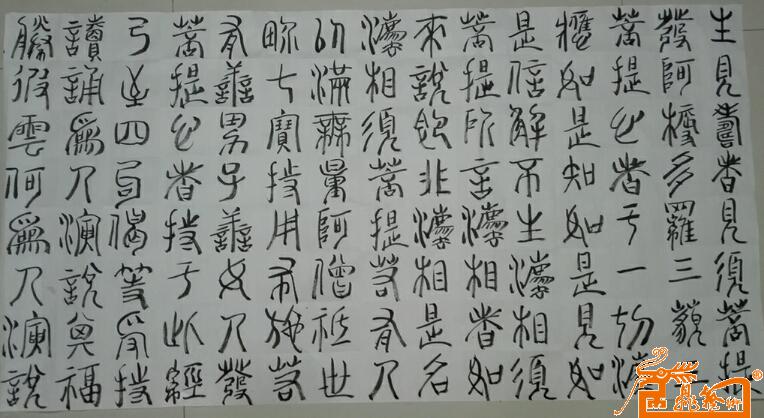 生見壽者見須菩提
發阿耨多羅三藐三
菩提心者于一切灋
應如是知如是見如
是信解不生灋相須
菩提所言灋相者如
來說即非灋相是名
灋相須菩提若有人
以滿無量阿僧祇世
界七寶持用布施若
有善男子善女人發
菩提心者持于此經
乃至四句偈等受持
讀誦爲人演說其福
勝彼雲何爲人演說